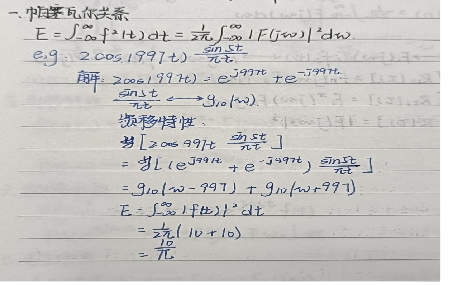 一、帕塞瓦尔关系
E = ∫_{-∞}^{∞} f²(t) dt = \frac{1}{2π} ∫_{-∞}^{∞} |F(jω)|² dω.
e.g: 2cos(997t) \frac{sin5t}{πt}
解: 2cos(997t) = e^{j997t} + e^{-j997t}
\frac{sin5t}{πt} ⟷ g₁₀(ω)
频移特性.
[2cos997t \frac{sin5t}{πt}]
= [(e^{j997t} + e^{-j997t}) \frac{sin5t}{πt}]
= g₁₀(ω-997) + g₁₀(ω+997)
E = ∫_{-∞}^{∞} |f(t)|² dt
= \frac{1}{2π}(10+10)
= \frac{10}{π}